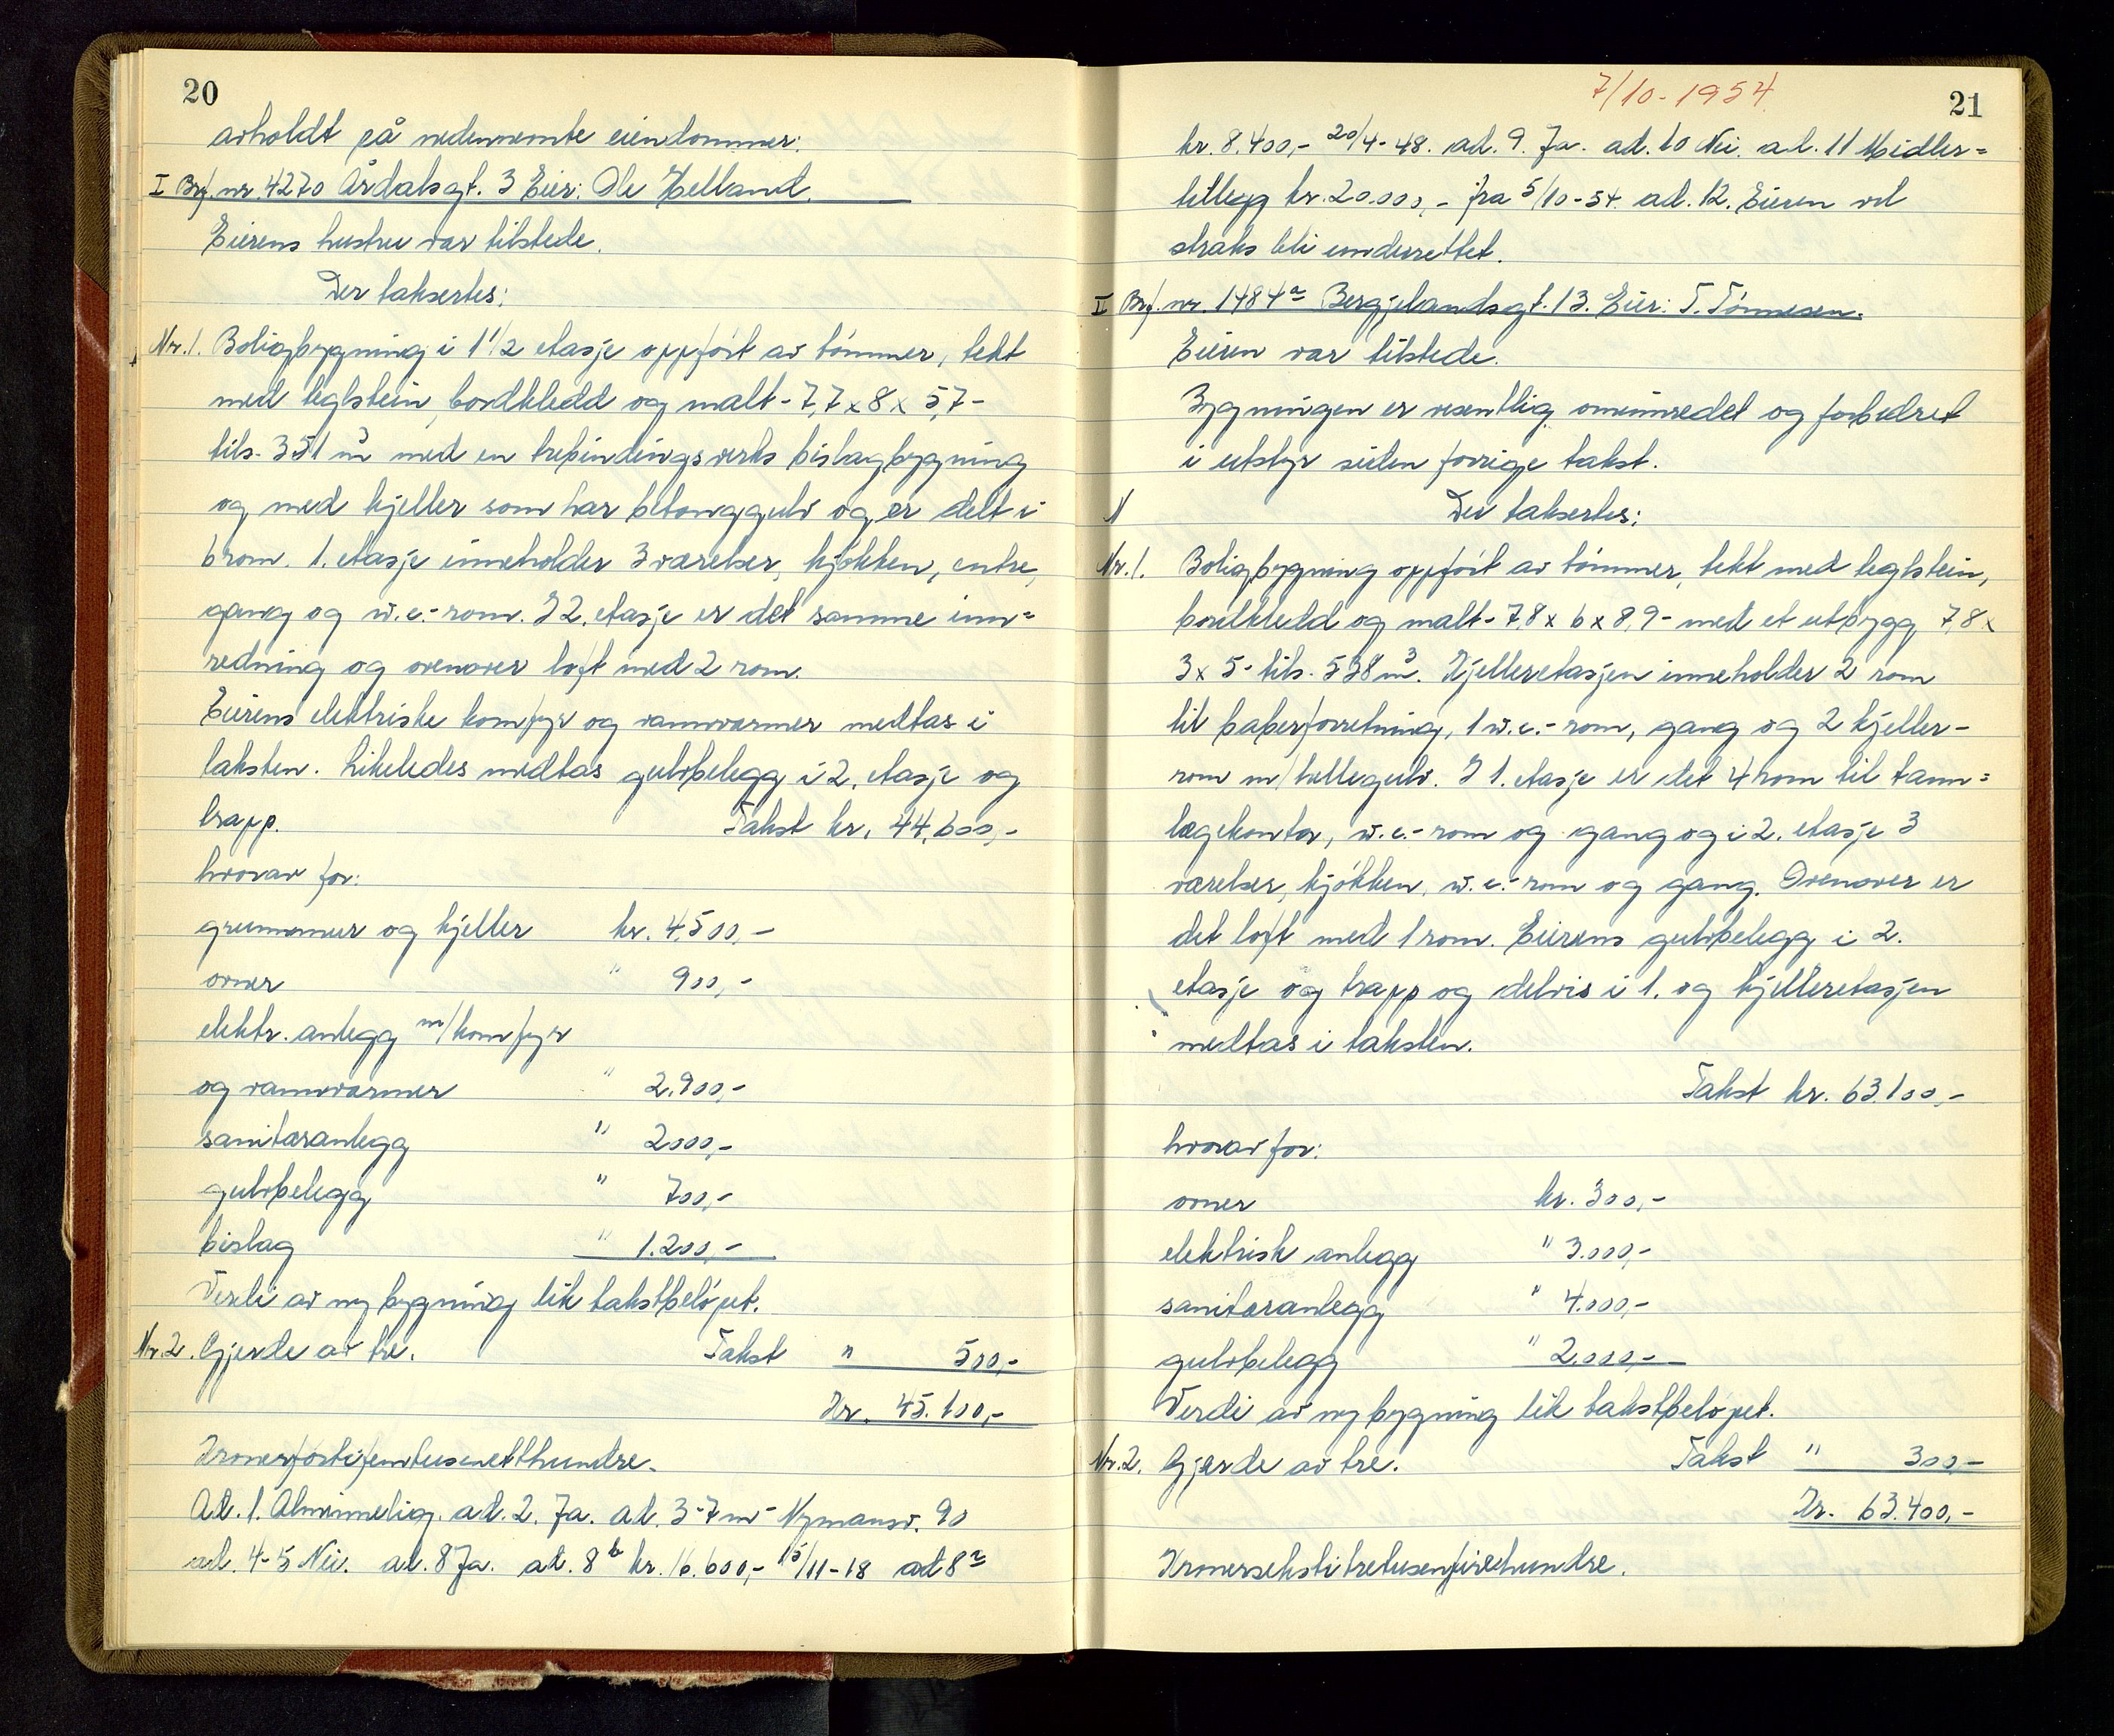 20
avholdt på nedennevnte eiendommer:
I Brf. nr. 4270 Årdalsgt. 3 Eier: Ole Helland.
Eierens hustru var tilstede.
Der taksertes:
Nr. 1. Boligbygning i 1 1/2 etasje oppført av tømmer, tekt
med teglstein, bordkledd og malt - 7,7 x 8 x 5,7 -
tils. 351 m³ med en trebindingsverks bislagbygning
og med kjeller som har betonggulv og er delt i
6 rom. 1. etasje inneholder 3 værelser, kjøkken, entre,
gang og w.c.-rom. I 2. etasje er det samme inn=
redning og ovenover loft med 2 rom.
Eierens elektriske komfyr og vannvarmer medtas i
taksten. Likeledes medtas gulvbelegg i 2. etasje og
trapp. Takst kr. 44.600,-
hvorav for:
grunnmur og kjeller kr. 4.500,-
ovner " 900,-
elektr. anlegg m/komfyr
og vannvarmer " 2.900,-
sanitæranlegg " 2000,-
gulvbelegg " 700,-
bislag " 1.200,-
Verdi av ny bygning lik takstbeløpet.
Nr. 2. Gjerde av tre. Takst " 500,-
Kr. 45.100,-
Kronerførtifemtusenetthundre.
Ad. 1. Alminnelig. ad. 2. Ja. ad. 3-7 m- Nymansv. 90
ad. 4-5 Nei. ad. 8 Ja. ad. 8 b kr. 16.600,- 15/11-18 ad 8 a
7/10-1954
21
kr. 8.400,- 20/4-48. ad. 9. Ja. ad. 10 Nei. ad. 11 Midler=
tillegg kr. 20.000,- fra 5/10-54. ad. 12. Eieren vil
straks bli underrettet.
II Brf. nr. 1484 a Bergjelandsgt. 13. Eier: T. Tønnesen.
Eieren var tilstede.
Bygningen er vesentlig ominnredet og forbedret
i utstyr siden forrige takst.
Der taksertes:
Nr. 1. Boligbygning oppført av tømmer, tekt med teglstein,
bordkledd og malt - 7,8 x 6 x 8,9 - med et utbygg 7,8 x
3 x 5 - tils. 538 m³. Kjelleretasjen inneholder 2 rom
til papirforretning, 1 w.c.-rom, gang og 2 kjeller-
rom m/hellegulv. I 1. etasje er det 4 rom til tann=
legekontor, w.c.-rom og gang og i 2. etasje 3
værelser, kjøkken, w.c.-rom og gang. Ovenover er
det loft med 1 rom. Eierens gulvbelegg i 2.
etasje og trapp og delvis i 1. og kjelleretasjen
medtas i taksten.
Takst kr. 63.100,-
hvorav for:
ovner kr. 300,-
elektrisk anlegg " 3.000,-
sanitæranlegg " 4.000,-
gulvbelegg " 2.000,-
Verdi av ny bygning lik takstbeløpet.
Nr. 2. Gjerde av tre. Takst " 300,-
Kr. 63.400,-
Kronersekstitretusenfirehundre.